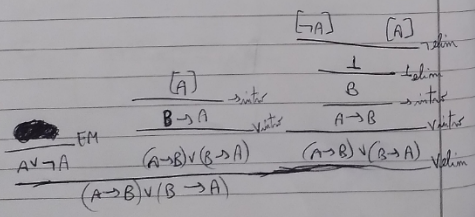 [¬A] [A]
¬elim
⊥
⊥elim
[A] B
→intro →intro
B→A A→B
∨intro ∨intro
EM
A∨¬A (A→B)∨(B→A) (A→B)∨(B→A)
∨elim
(A→B)∨(B→A)